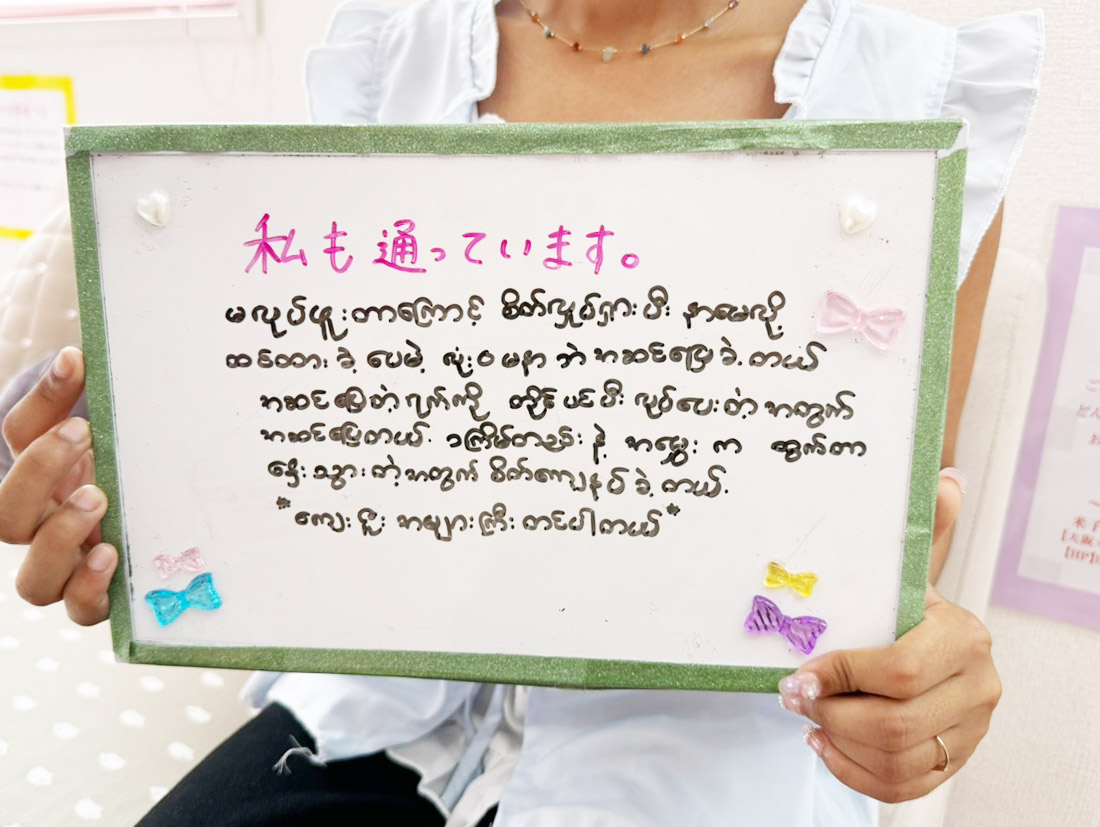 私も通っています。
မလုပ်ဖူးတာကြောင့် စိတ်လှုပ်ရှားပီး နာမေလို့
ထင်ထားခဲ့ပေမဲ့ လုံးဝမနာဘဲ အဆင်ပြေခဲ့တယ်
အဆင်ပြေတဲ့ရက်ကို တိုင်ပင်ပီး လုပ်ပေးတဲ့အတွက်
အဆင်ပြေတယ်. ၁ကြိမ်တည်းနဲ့ အမွှေးက ထွက်တာ
နှေးသွားတဲ့အတွက် စိတ်ကျေနပ်ခဲ့တယ်.
*ကျေးဇူးအများကြီးတင်ပါတယ်*